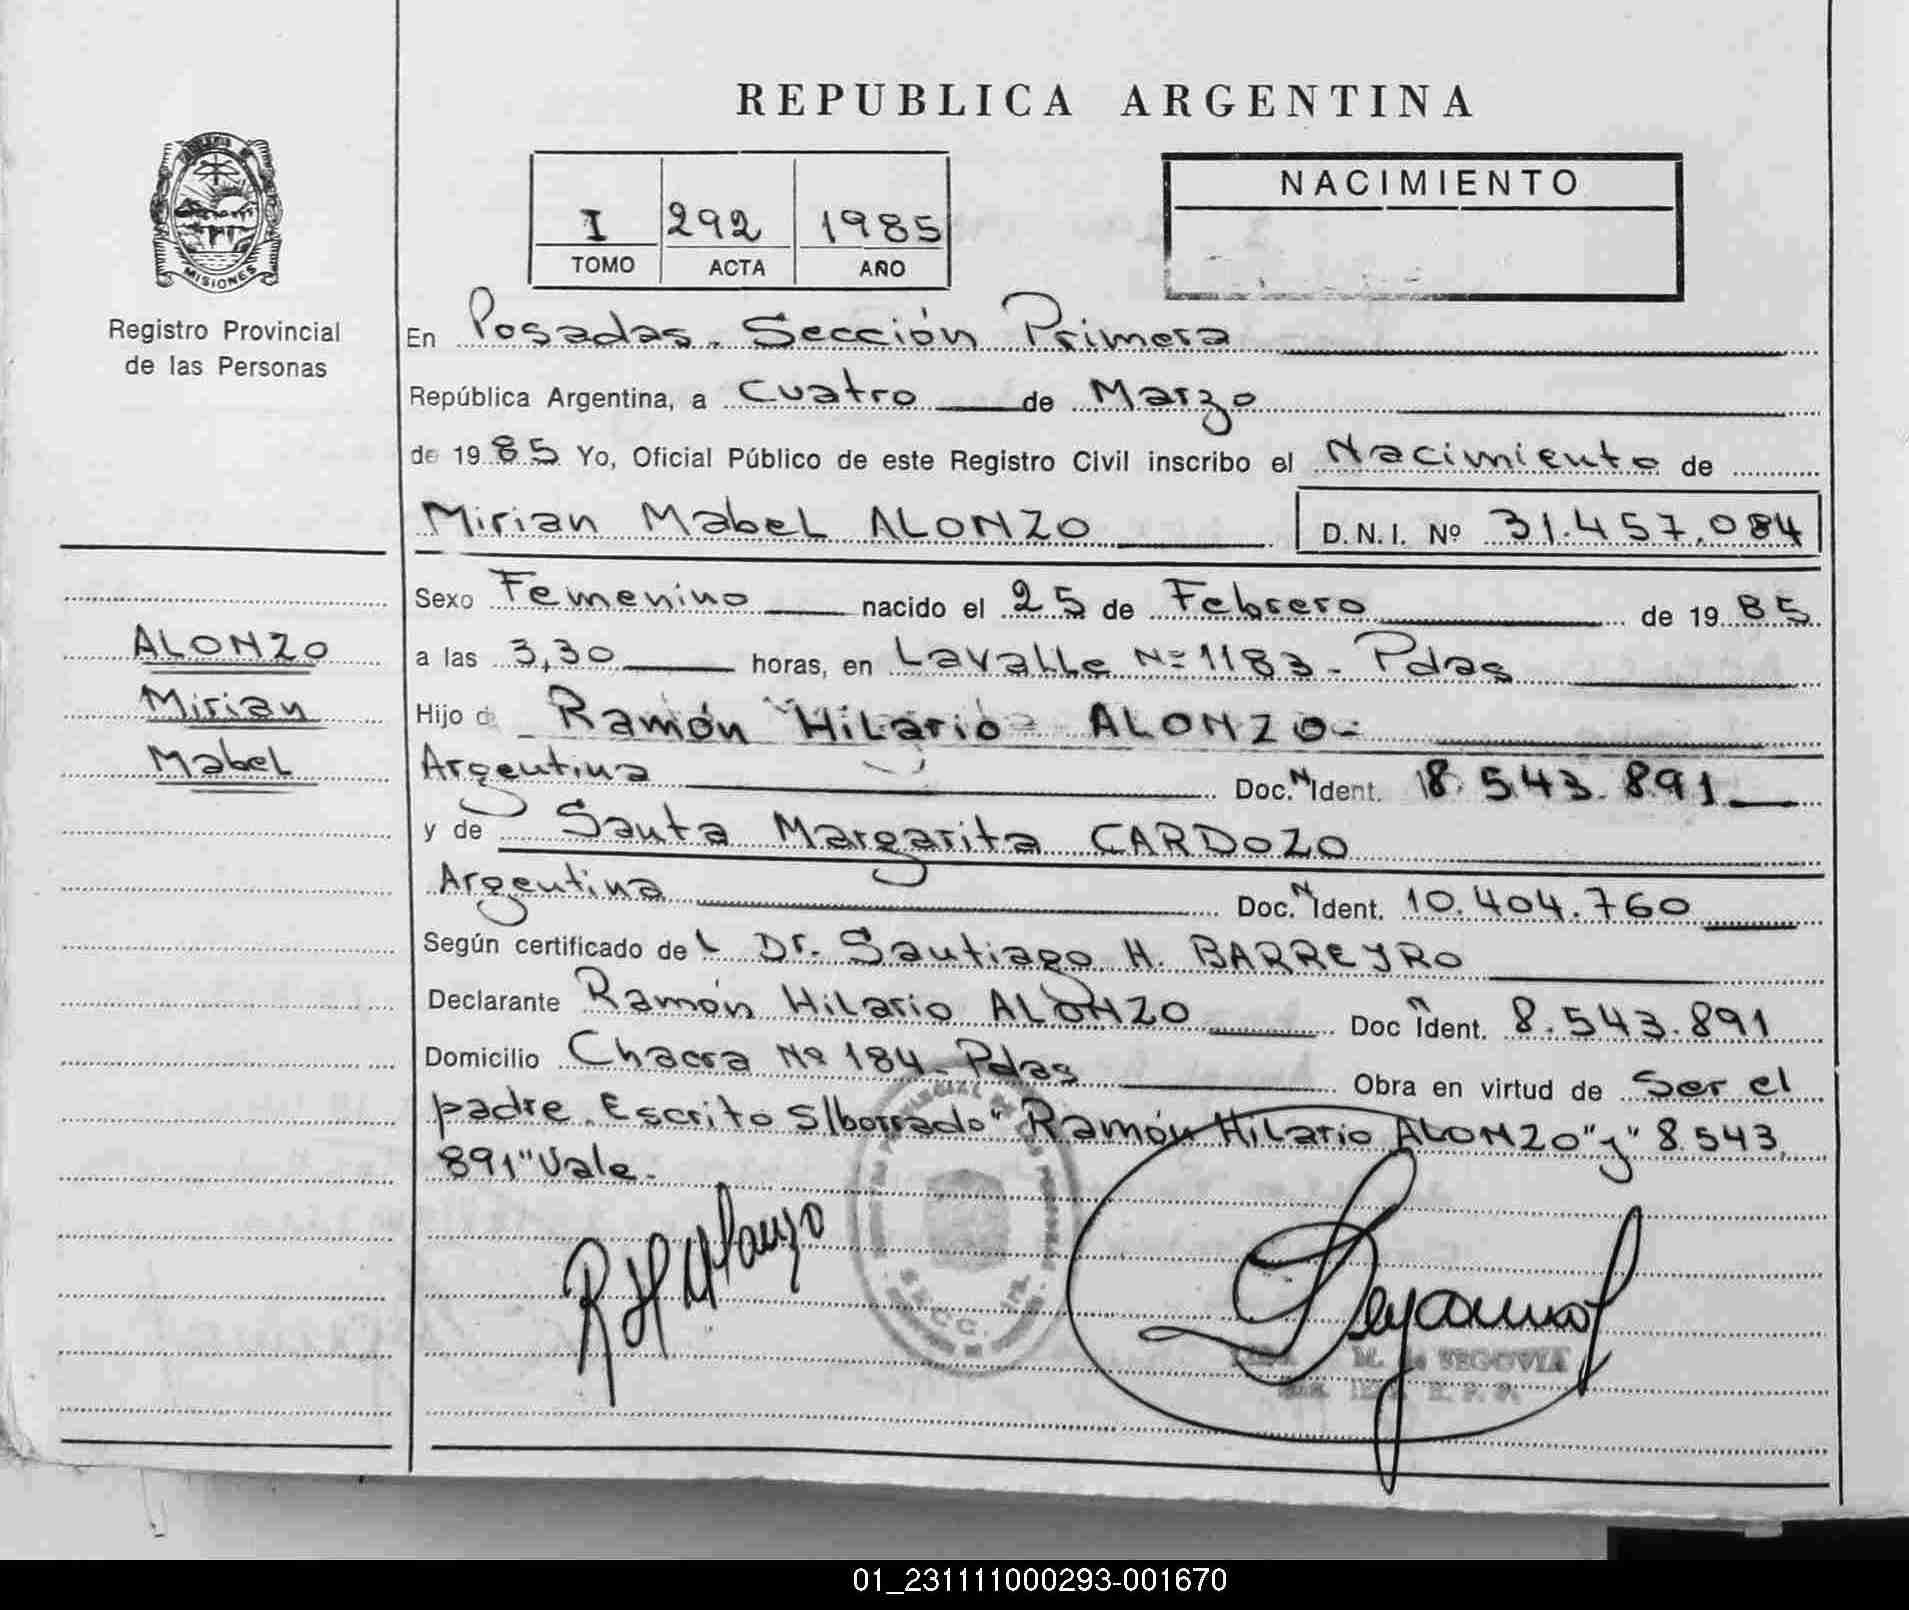 REPUBLICA ARGENTINA
MISIONES
Registro Provincial
de las Personas
I 292 1985
TOMO ACTA AÑO
NACIMIENTO
En Posadas. Sección Primera
República Argentina, a Cuatro de Marzo
de 1985 Yo, Oficial Público de este Registro Civil inscribo el Nacimiento de
Mirian Mabel ALONZO D.N.I. Nº 31.457.084
Sexo Femenino nacido el 25 de Febrero de 1985
a las 3,30 horas, en Lavalle Nº 1183 - Pdas
Hijo d Ramón Hilario ALONZO-
Argentina Doc. N Ident. 8.543.891
y de Santa Margarita CARDOZO
Argentina Doc. N Ident. 10.404.760
Según certificado del Dr. Santiago H. BARREYRO
Declarante Ramón Hilario ALONZO Doc N Ident. 8.543.891
Domicilio Chacra Nº 184 - Pdas Obra en virtud de Ser el
padre. Escrito s/borrado "Ramón Hilario ALONZO" y "8.543.
891" Vale.
ALONZO
Mirian
Mabel
RHAlonzo
M. de SEGOVIA
01_231111000293-001670